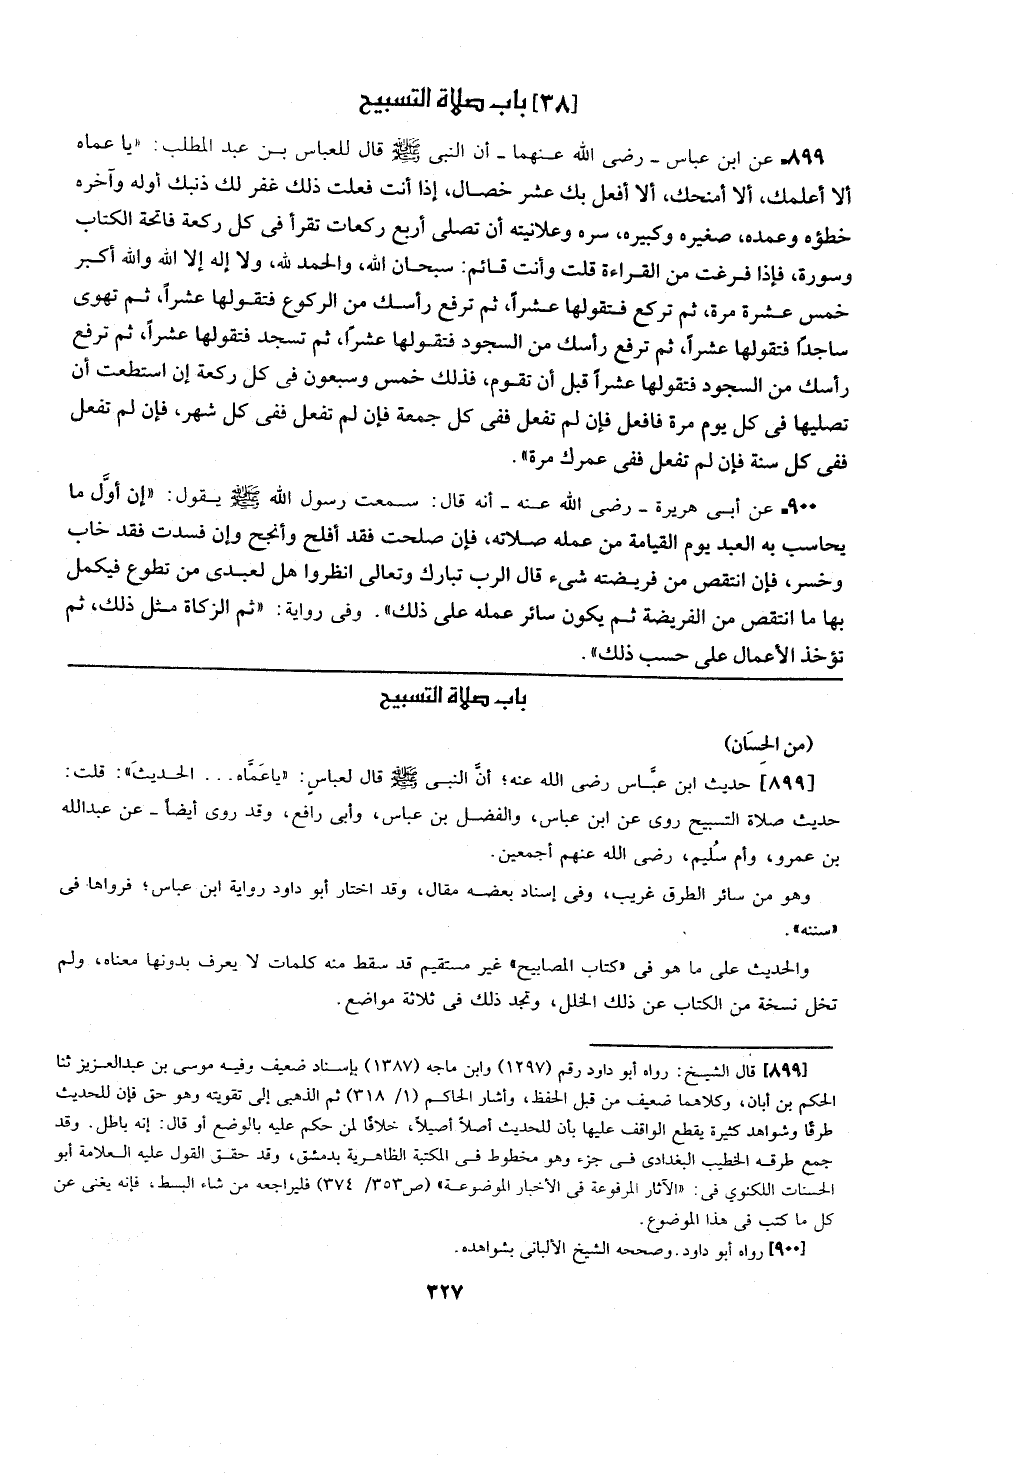 [٣٨] باب صلاة التسبيح
٨٩٩ـ عن ابن عباس ـ رضى الله عنهما ـ أن النبى ﷺ قال للعباس بن عبد المطلب: «يا عماه
ألا أعلمك، ألا أمنحك، ألا أفعل بك عشر خصال، إذا أنت فعلت ذلك غفر لك ذنبك أوله وآخره
خطؤه وعمده، صغيره وكبيره، سره وعلانيته أن تصلى أربع ركعات تقرأ فى كل ركعة فاتحة الكتاب
وسورة، فإذا فرغت من القراءة قلت وأنت قائم: سبحان الله، والحمد لله، ولا إله إلا الله والله أكبر
خمس عشرة مرة، ثم تركع فتقولها عشراً، ثم ترفع رأسك من الركوع فتقولها عشراً، ثم تهوى
ساجدًا فتقولها عشراً، ثم ترفع رأسك من السجود فتقولها عشرًا، ثم تسجد فتقولها عشراً، ثم ترفع
رأسك من السجود فتقولها عشراً قبل أن تقوم، فذلك خمس وسبعون فى كل ركعة إن استطعت أن
تصليها فى كل يوم مرة فافعل فإن لم تفعل ففى كل جمعة فإن لم تفعل ففى كل شهر، فإن لم تفعل
ففى كل سنة فإن لم تفعل ففى عمرك مرة».
٩٠٠ـ عن أبى هريرة ـ رضى الله عنه ـ أنه قال: سمعت رسول الله ﷺ يقول: «إن أوَّل ما
يحاسب به العبد يوم القيامة من عمله صلاته، فإن صلحت فقد أفلح وأنجح وإن فسدت فقد خاب
وخسر، فإن انتقص من فريضته شىء قال الرب تبارك وتعالى انظروا هل لعبدى من تطوع فيكمل
بها ما انتقص من الفريضة ثم يكون سائر عمله على ذلك». وفى رواية: «ثم الزكاة مثل ذلك، ثم
تؤخذ الأعمال على حسب ذلك».
باب صلاة التسبيح
(من الحِسَان)
[٨٩٩] حديث ابن عبَّاس رضى الله عنه؛ أنَّ النبى ﷺ قال لعباسٍ: «ياعَمَّاه... الحديثَ»: قلت:
حديث صلاة التسبيح روى عن ابن عباس، والفضل بن عباس، وأبى رافع، وقد روى أيضاً ـ عن عبدالله
بن عمرو، وأم سُليم، رضى الله عنهم أجمعين.
وهو من سائر الطرق غريب، وفى إسناد بعضه مقال، وقد اختار أبو داود رواية ابن عباس؛ فرواها فى
«سننه».
والحديث على ما هو فى «كتاب المصابيح» غير مستقيم قد سقط منه كلمات لا يعرف بدونها معناه، ولم
تخل نسخة من الكتاب عن ذلك الخلل، وتجد ذلك فى ثلاثة مواضع.
[٨٩٩] قال الشيخ: رواه أبو داود رقم (١٢٩٧) وابن ماجه (١٣٨٧) بإسناد ضعيف وفيه موسى بن عبدالعزيز ثنا
الحكم بن أبان، وكلاهما ضعيف من قبل الحفظ، وأشار الحاكم (١/ ٣١٨) ثم الذهبى إلى تقويته وهو حق فإن للحديث
طرقًا وشواهد كثيرة يقطع الواقف عليها بأن للحديث أصلاً أصيلاً، خلافًا لمن حكم عليه بالوضع أو قال: إنه باطل. وقد
جمع طرقه الخطيب البغدادى فى جزء وهو مخطوط فى المكتبة الظاهرية بدمشق، وقد حقق القول عليه العلامة أبو
الحسنات اللكنوي فى: «الآثار المرفوعة فى الأخبار الموضوعة» (ص٣٥٣/ ٣٧٤) فليراجعه من شاء البسط، فإنه يغنى عن
كل ما كتب فى هذا الموضوع.
[٩٠٠] رواه أبو داود. وصححه الشيخ الألبانى بشواهده.
٣٢٧